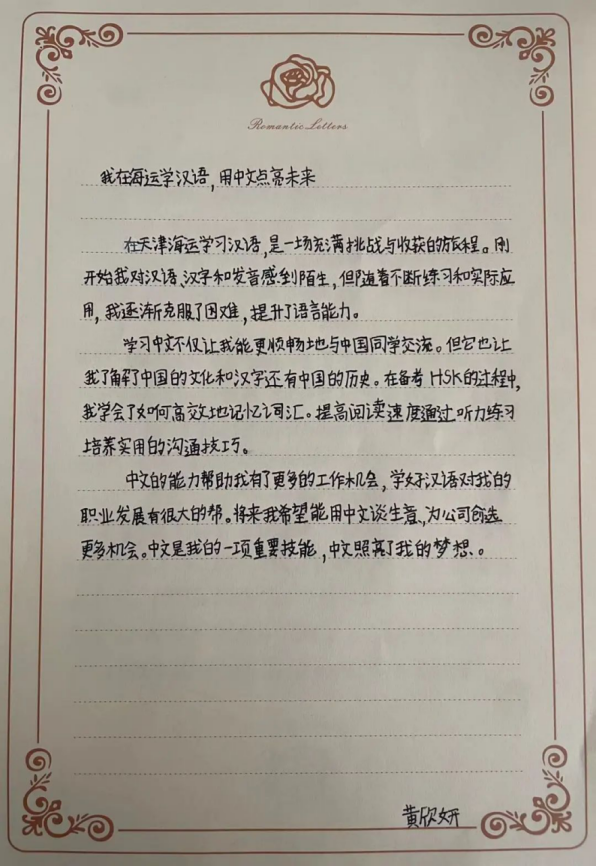 Romantic Letters
我在海运学汉语,用中文点亮未来
在天津海运学习汉语,是一场充满挑战与收获的旅程。刚
开始我对汉语、汉字和发音感到陌生,但随着不断练习和实际应
用,我逐渐克服了困难,提升了语言能力。
学习中文不仅让我能更顺畅地与中国同学交流。但它也让
我了解了中国的文化和汉字还有中国的历史。在备考 HSK的过程中,
我学会了如何高效地记忆词汇。提高阅读速度通过听力练习
培养实用的沟通技巧。
中文的能力帮助我有了更多的工作机会,学好汉语对我的
职业发展有很大的帮。将来我希望能用中文谈生意,为公司创造
更多机会。中文是我的一项重要技能,中文照亮了我的梦想。
黄欣妍